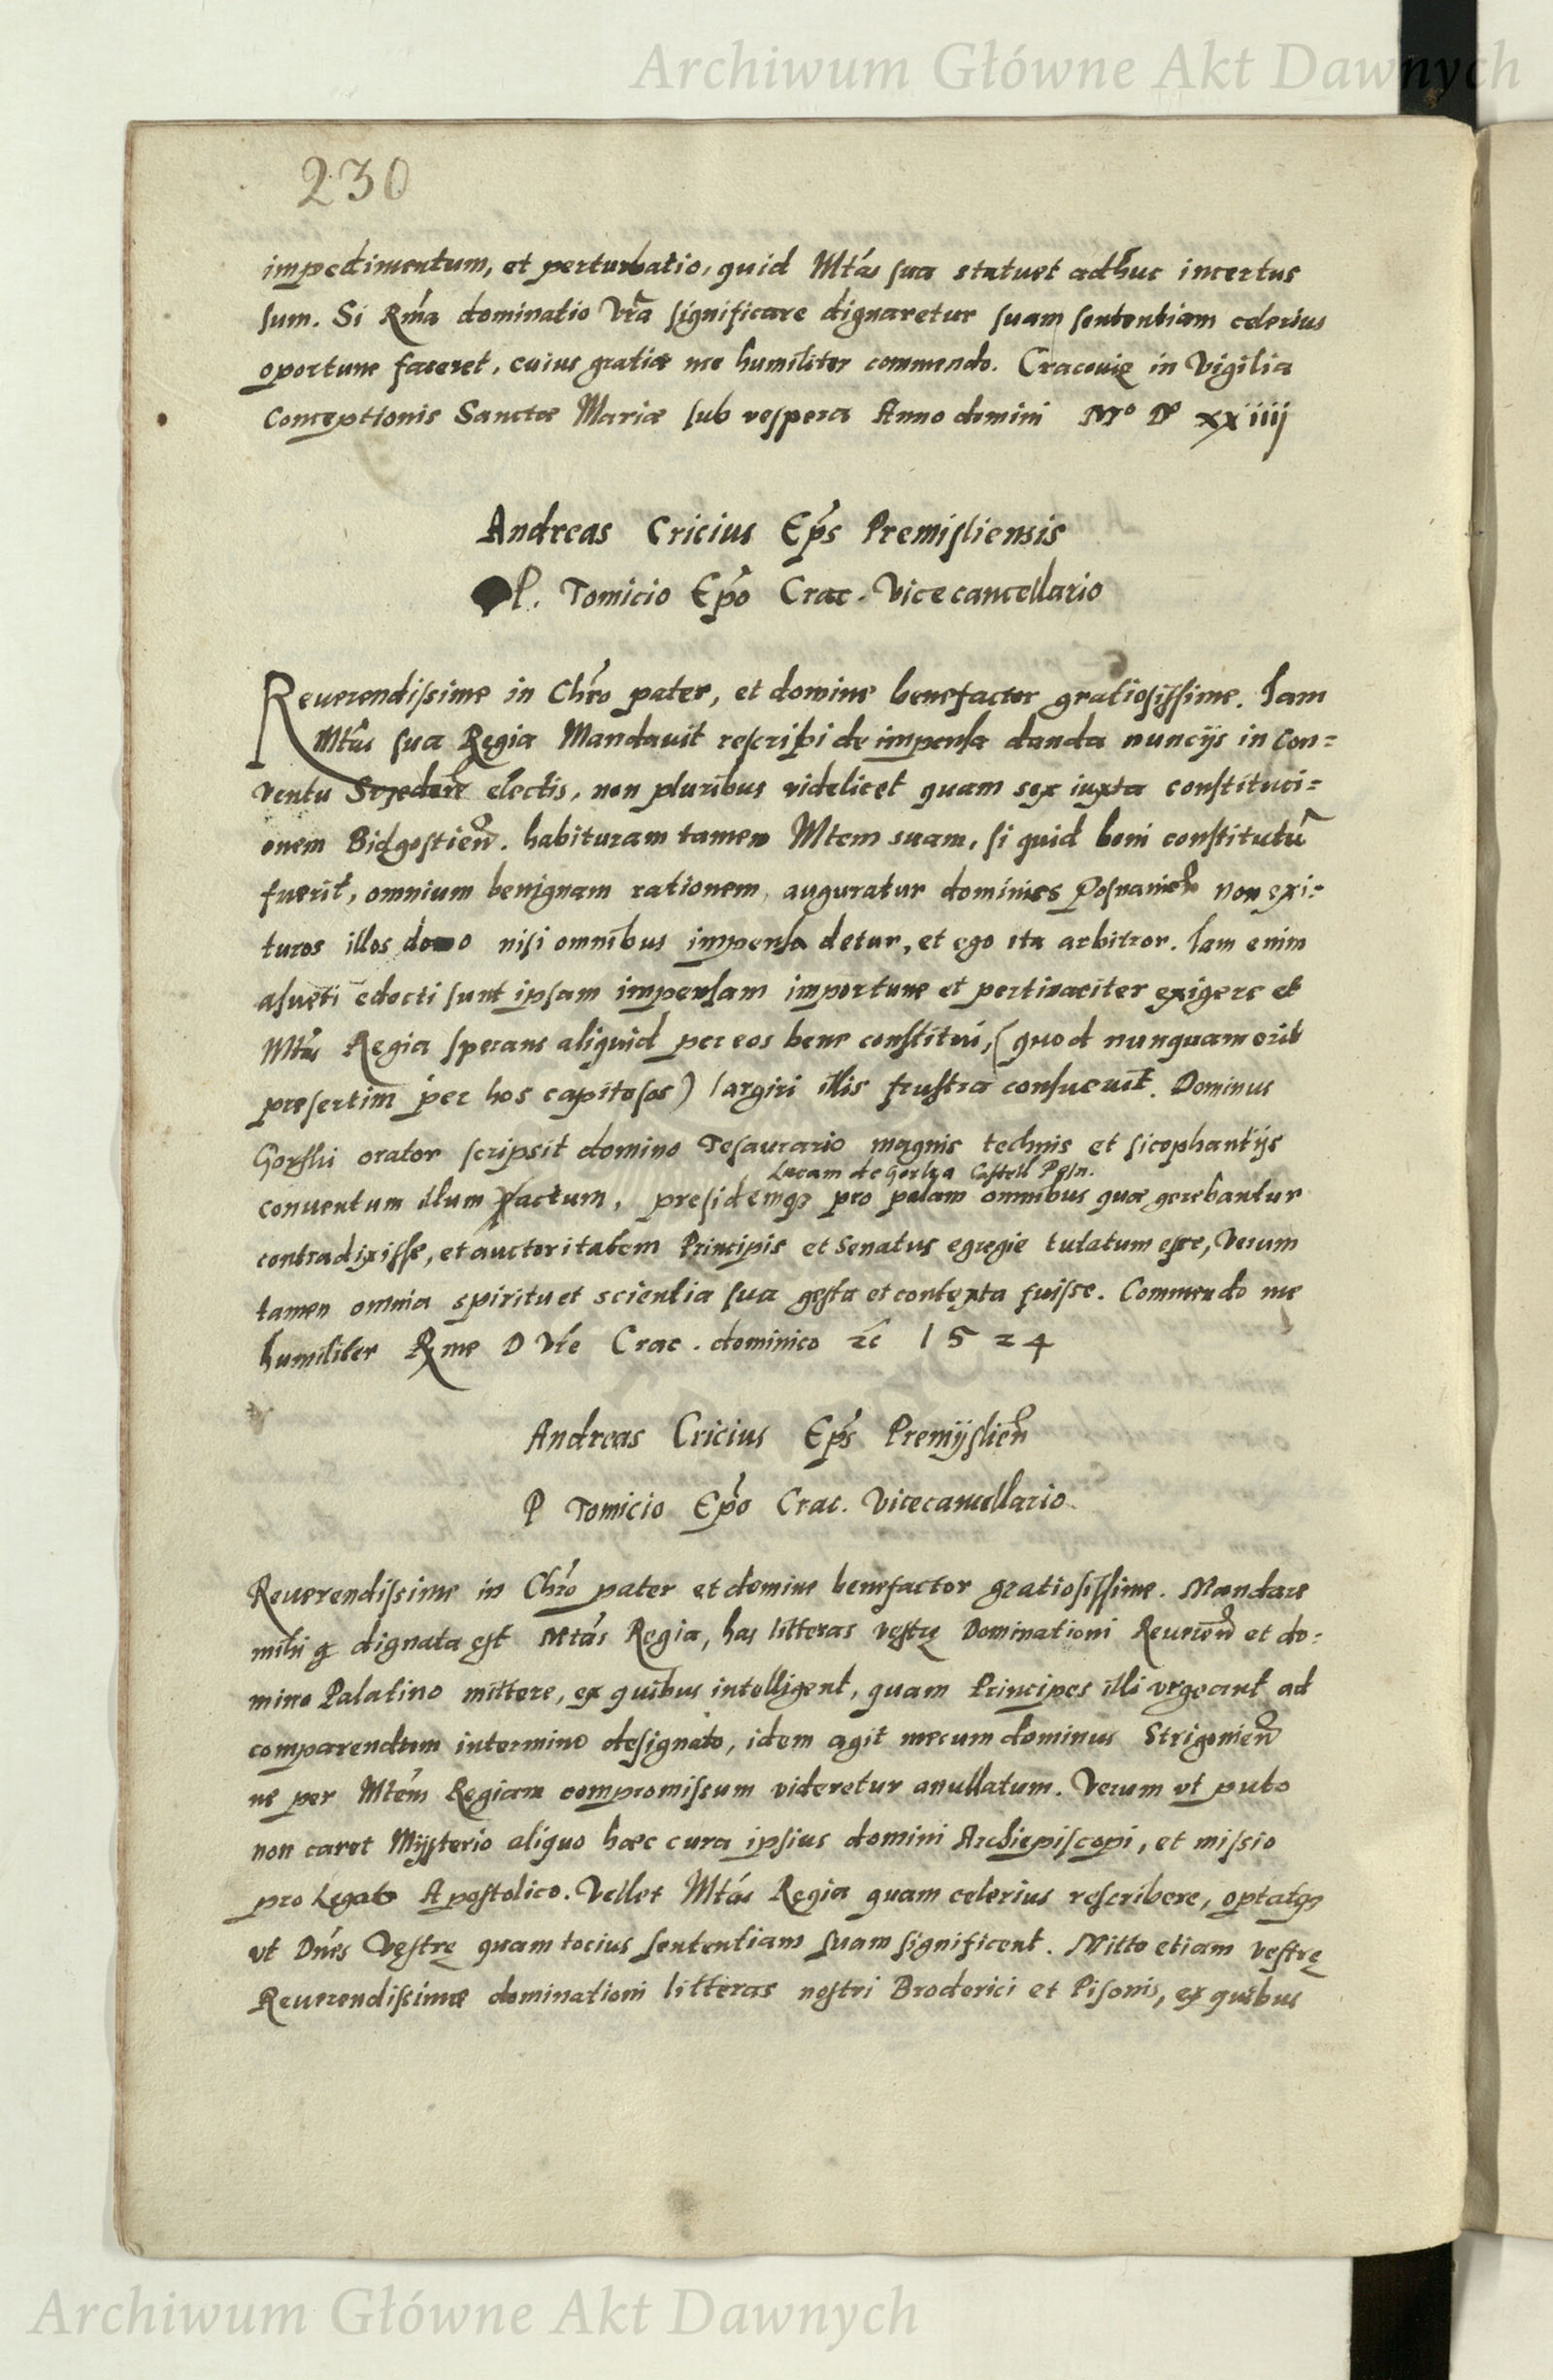 Archiwum Główne Akt Dawnych
230
impedimentum, et perturbatio, quid Mtás sua statuet adhuc incertus
sum. Si Rma dominatio Vra significare dignaretur suam sententiam celerius
oportune faceret, cuius gratiæ me humiliter commendo. Cracouię in Vigilia
Conceptionis Sanctæ Mariæ sub vespera Anno domini Mº Dº xxiiij
Andreas Cricius Eps Premisliensis
P. Tomicio Epo Crac. Vicecancellario
Reuerendissime in Chro pater, et domine benefactor gratiosissime. Iam
Mtás sua Regia Mandauit rescribi de impensa danda nuncijs in Con=
ventu electis, non pluribus videlicet quam sex iuxta constituci=
onem Bidgostien. habituram tamen Mtem suam, si quid boni constitutū
fuerit, omnium benignam rationem, auguratur dominus Posnanien non exi=
turos illos domo nisi omnibus impensa detur, et ego ita arbitror. Iam enim
asueti edocti sunt ipsam impensam importune et pertinaciter exigere et
Mtás Regia sperans aliquid per eos bene constitui, (quod nunquam erit
presertim per hos capitosos) largiri illis frustra consueuit. Dominus
Gorski orator scripsit domino Tesaurario magnis technis et sicophantijs
Lucam de Gorka Castell Posn.
conuentum illum factum, presidemq3 pro palam omnibus quæ gerebantur
contradixisse, et auctoritatem Principis et Senatus egregie tutatum esse, Verum
tamen omnia spiritu et scientia sua gesta et contexta fuisse. Commendo me
humiliter Rme D Vre Crac. dominico 1524
Andreas Cricius Eps Premijslien
P Tomicio Epo Crac. Vicecancellario
Reuerendissime in Chro pater et domine benefactor gratiosissime. Mandare
mihi dignata est Mtás Regia, has litteras vestrę Dominationi Reueren et do=
mino Palatino mittere, ex quibus intelligent, quam Principes illi vrgeant ad
comparendum in termino designato, idem agit mecum dominus Strigonien
ne per Mtém Regiam compromissum videretur anullatum. Verum vt puto
non caret Mysterio aliquo hæc cura ipsius domini Archiepiscopi, et missio
pro Legato Apostolico. Vellet Mtás Regia quam celerius rescribere, optatq3
vt Dnes Vestrę quam tocius sententiam suam significent. Mitto etiam vestrę
Reuerendissimæ dominationi litteras nostri Broderici et Pisonis, ex quibus
Archiwum Główne Akt Dawnych